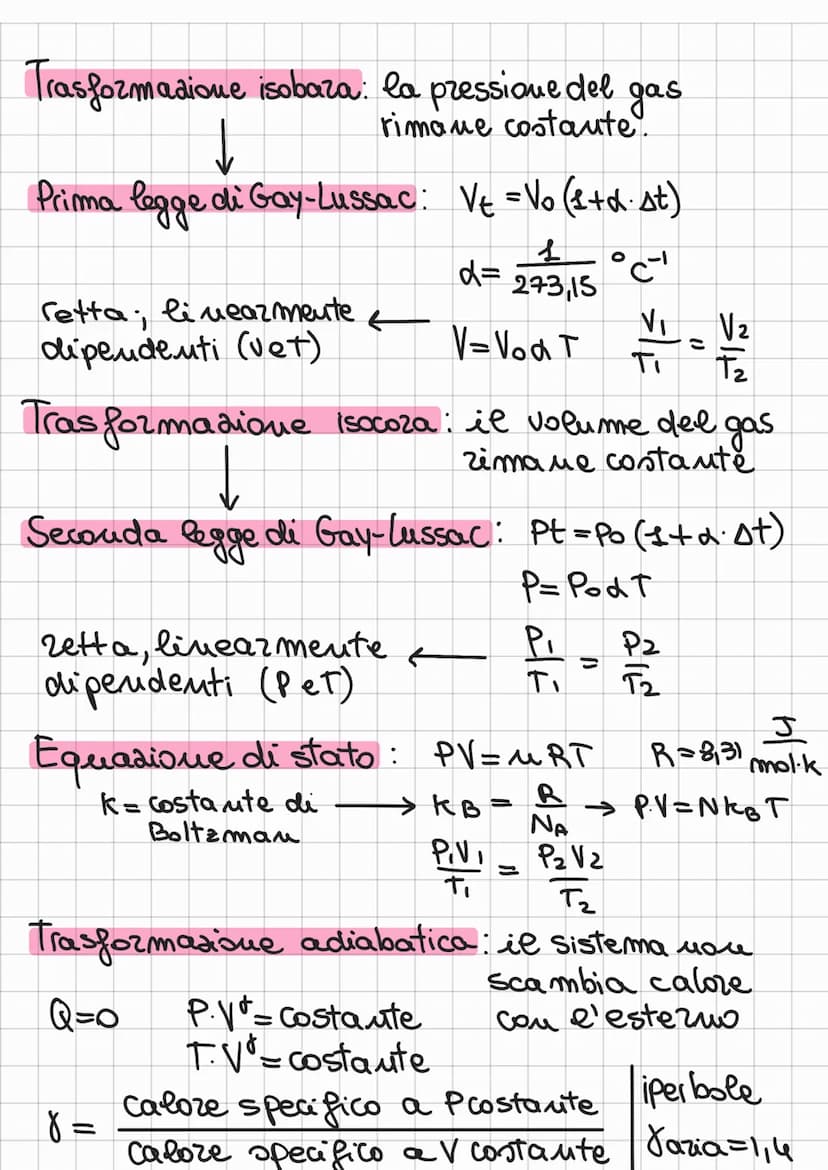 Trasformazione isobara: la pressione del gas
rimane costante.
↓
Prima legge di Gay-Lussac: Vt = V0 (1+α·Δt)
α = 1/273,15 °C⁻¹
retta; linearmente ←
dipendenti (V e T) V = V0 α T V1/T1 = V2/T2
Trasformazione isocora: il volume del gas
rimane costante
↓
Seconda legge di Gay-Lussac: Pt = P0 (1+α·Δt)
P = P0 α T
retta, linearmente ← P1/T1 = P2/T2
dipendenti (P e T)
Equazione di stato: PV = nRT R = 8,31 J/mol·K
K = costante di → KB = R/NA → P·V = N KB T
Boltzman
P1V1/T1 = P2V2/T2
Trasformazione adiabatica: il sistema non
scambia calore
Q=0 P·V^γ = costante con l'esterno
T·V^γ = costante
γ = calore specifico a P costante / calore specifico a V costante | iperbole
γaria = 1,4